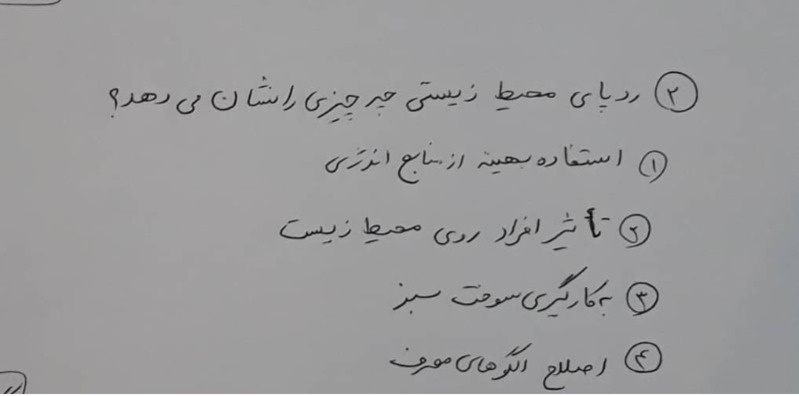 ۲ ردپای محیط زیستی چه چیزی را نشان می دهد؟
۱ استفاده بهینه از منابع انرژی
۲ تأثیر افراد روی محیط زیست
۳ به کارگیری سوخت سبز
۴ اصلاح الگوهای مصرف